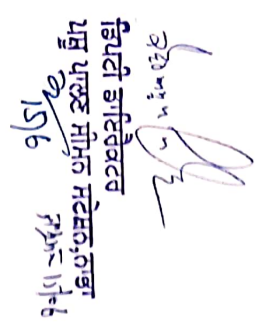 ਡਿਪਟੀ ਡਾਇਰੈਕਟਰ
ਪਸ਼ੂ ਪਾਲਣ ਸੀਮਨ ਸਟੇਸ਼ਨ,ਨਾਭਾ
15/6